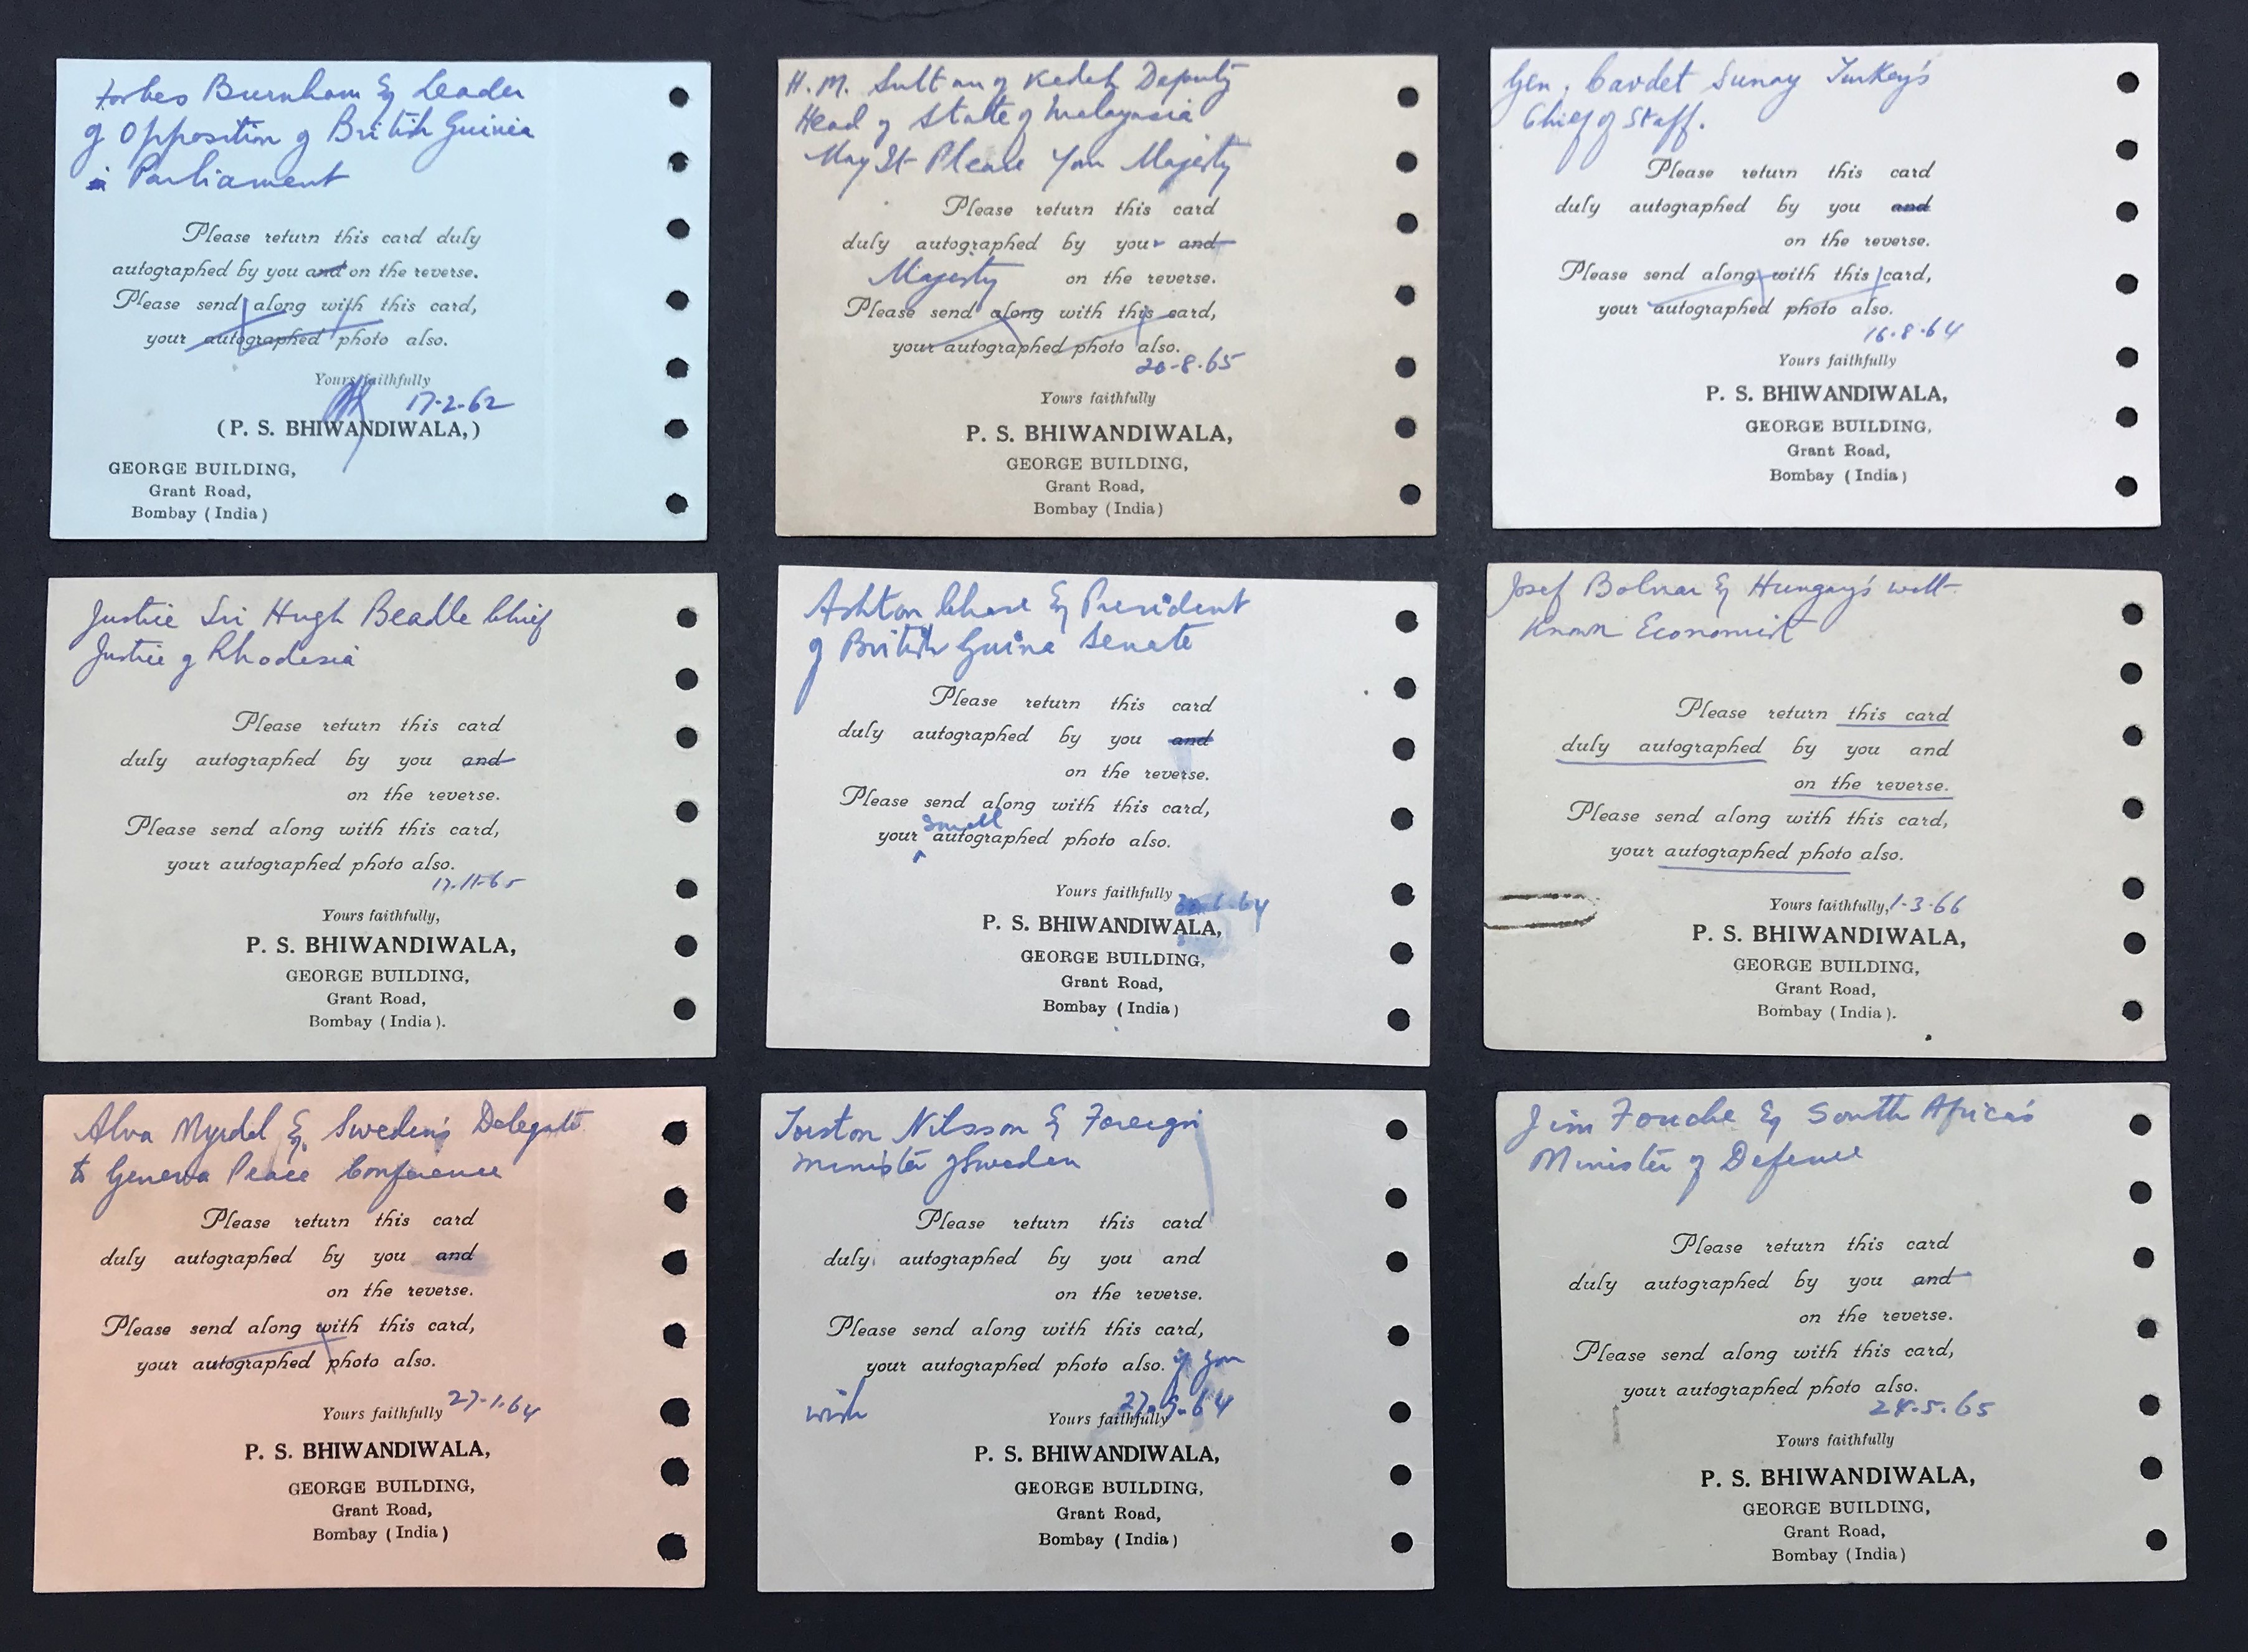 Forbes Burnham Eq Leader
of Opposition of British Guinea
Parliament
Please return this card duly
autographed by you and on the reverse.
Please send along with this card,
your autographed photo also.
Yours faithfully
17-2-62
(P. S. BHIWANDIWALA,)
GEORGE BUILDING,
Grant Road,
Bombay (India)
H.M. Sultan of Kedeh Deputy
Head of State of Malaysia
May It Please Your Majesty
Please return this card
duly autographed by your and
Majesty on the reverse.
Please send along with this card,
your autographed photo also.
20-8-65
Yours faithfully
P. S. BHIWANDIWALA,
GEORGE BUILDING,
Grant Road,
Bombay (India)
Gen. Cavdet Sunay Turkey's
Chief of Staff.
Please return this card
duly autographed by you and
on the reverse.
Please send along with this card,
your autographed photo also.
16-8-64
Yours faithfully
P. S. BHIWANDIWALA,
GEORGE BUILDING,
Grant Road,
Bombay (India)
Justice Sir Hugh Beadle Chief
Justice of Rhodesia
Please return this card
duly autographed by you and
on the reverse.
Please send along with this card,
your autographed photo also.
17-11-65
Yours faithfully,
P. S. BHIWANDIWALA,
GEORGE BUILDING,
Grant Road,
Bombay (India).
Ashton Chase Eq President
of British Guina Senate
Please return this card
duly autographed by you and
on the reverse.
Please send along with this card,
small
your autographed photo also.
Yours faithfully
P. S. BHIWANDIWALA,
GEORGE BUILDING,
Grant Road,
Bombay (India)
Josef Bolnar Eq Hungary's well-
Known Economist
Please return this card
duly autographed by you and
on the reverse.
Please send along with this card,
your autographed photo also.
Yours faithfully, 1-3-66
P. S. BHIWANDIWALA,
GEORGE BUILDING,
Grant Road,
Bombay (India).
Alva Myrdal Eq. Sweden's Delegate
to Geneva Peace Conference
Please return this card
duly autographed by you and
on the reverse.
Please send along with this card,
your autographed photo also.
Yours faithfully 27-1-64
P. S. BHIWANDIWALA,
GEORGE BUILDING,
Grant Road,
Bombay (India)
Torston Nilsson Eq Foreign
Minister of Sweden
Please return this card
duly autographed by you and
on the reverse.
Please send along with this card,
your autographed photo also. if you
wish 27-9-64
Yours faithfully
P. S. BHIWANDIWALA,
GEORGE BUILDING,
Grant Road,
Bombay (India)
Jim Fouche Eq South Africa's
Minister of Defence
Please return this card
duly autographed by you and
on the reverse.
Please send along with this card,
your autographed photo also.
24-5-65
Yours faithfully
P. S. BHIWANDIWALA,
GEORGE BUILDING,
Grant Road,
Bombay (India)